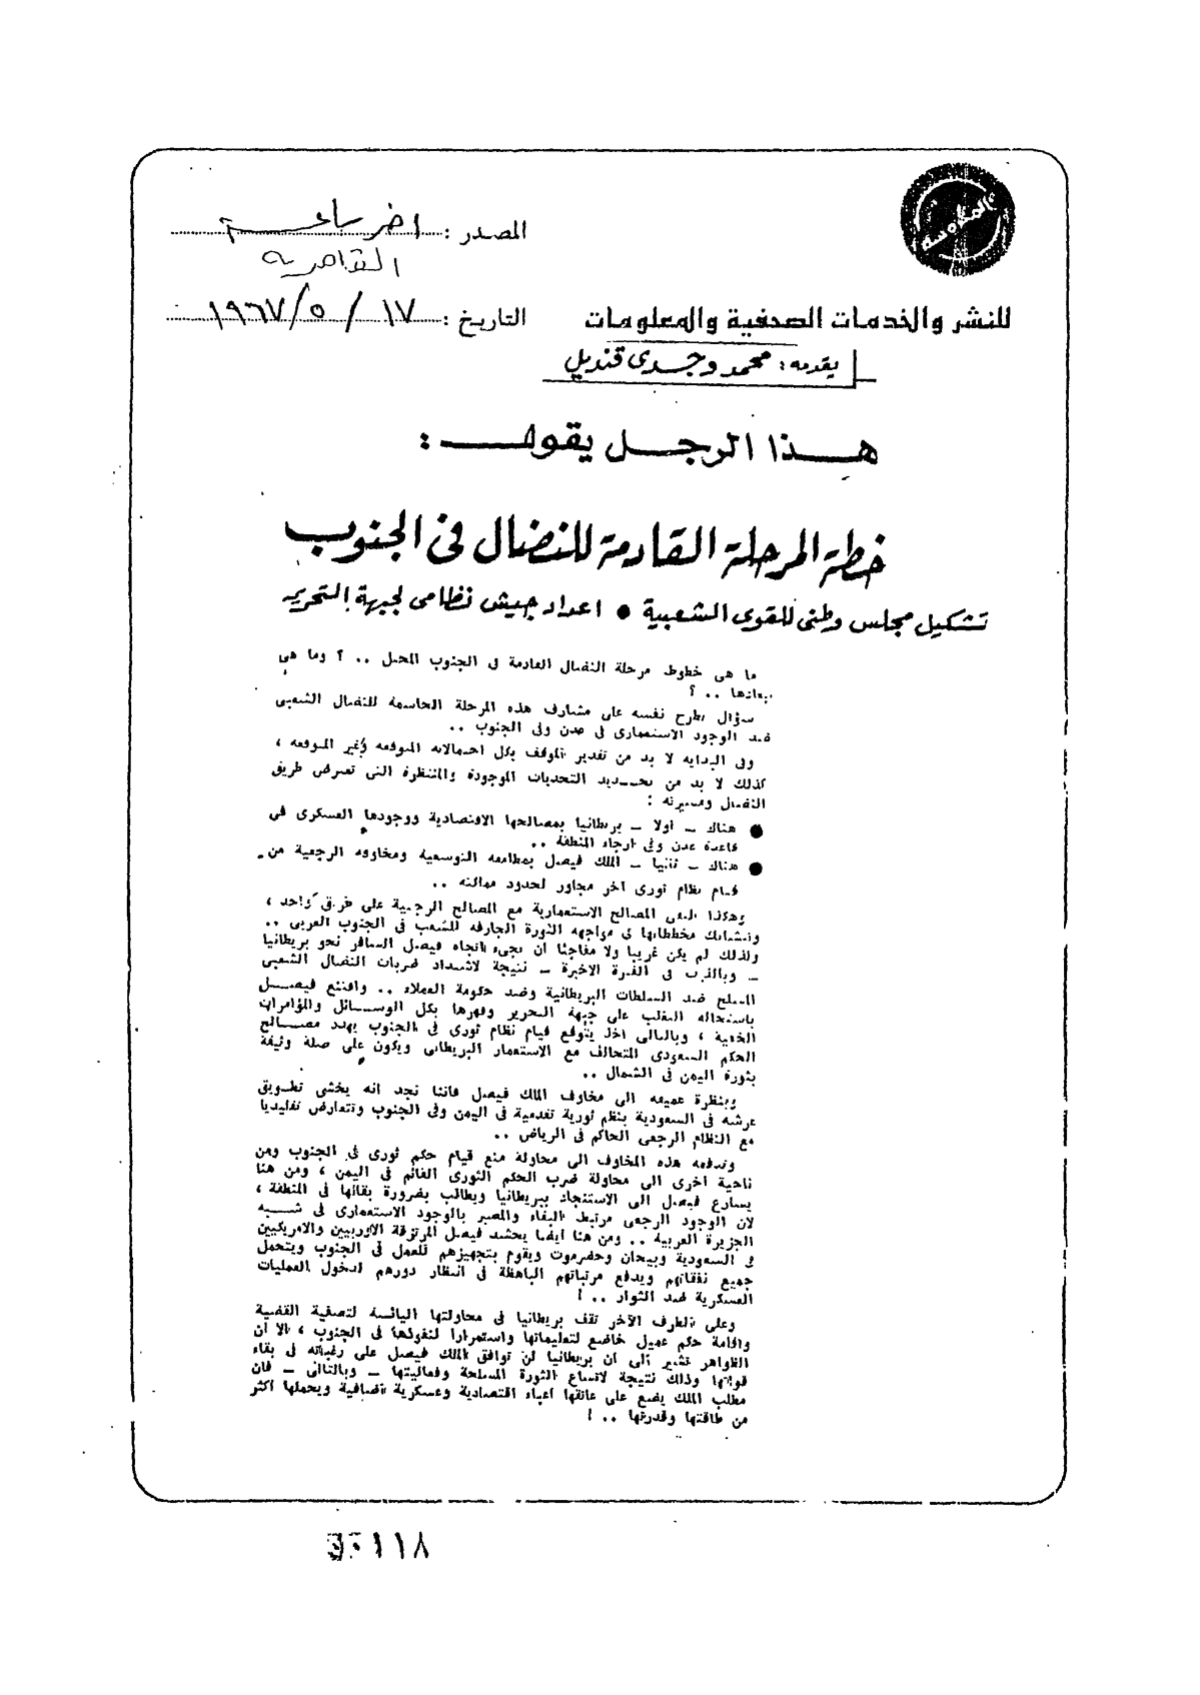 المصدر : اخر ساعة
القاهرية
للنشر والخدمات الصحفية والمعلومات
التاريخ : ١٧ / ٥ / ١٩٦٧
يقدمه : محمد وجدى قنديل
هذا الرجل يقول :
خطة المرحلة القادمة للنضال فى الجنوب
تشكيل مجلس وطنى للقوى الشعبية ● اعداد جيش نظامى لجبهة التحرير
ما هى خطوط مرحلة النضال القادمة فى الجنوب المحتل .. ؟ وما هى
.. ؟
سؤال يطرح نفسه على مشارف هذه المرحلة الحاسمة للنضال الشعبى
ضد الوجود الاستعمارى فى عدن وفى الجنوب ..
وفى البدايه لا بد من تقدير الموقف بكل احتمالاته المتوقعه وغير المتوقعه ،
كذلك لا بد من تحديد التحديات الموجودة والمنتظرة التى تعترض طريق
النضال ومسيرته :
● هناك - أولا - بريطانيا بمصالحها الاقتصادية ووجودها العسكرى فى
قاعدة عدن وفى ارجاء المنطقة ..
● هناك - ثانيا - الملك فيصل بمطامعه التوسعية ومخاوفه الرجعية من
قيام نظام ثورى آخر مجاور لحدود مملكته ..
وهكذا تلتقى المصالح الاستعمارية مع المصالح الرجعية على طريق واحد ،
وتتشابك مخططاتها فى مواجهه الثورة الجارفه للشعب فى الجنوب العربى ..
ولذلك لم يكن غريبا ولا مفاجئا ان يجىء اتجاه فيصل السافر نحو بريطانيا
- وبالذات فى الفترة الاخيرة - نتيجة لاشتداد ضربات النضال الشعبى
المسلح ضد السلطات البريطانية وضد حكومة العملاء .. واقتنع فيصل
باستحاله التغلب على جبهة التحرير وقهرها بكل الوسائل والمؤامرات
الخفية ، وبالتالى اخذ يتوقع قيام نظام ثورى فى الجنوب يهدد مصالح
الحكم السعودى المتحالف مع الاستعمار البريطانى ويكون على صلة وثيقة
بثورة اليمن فى الشمال ..
وبنظرة عميقه الى مخاوف الملك فيصل فاننا نجد انه يخشى تطويق
عرشه فى السعودية بنظم ثورية تقدمية فى اليمن وفى الجنوب وتتعارض تقليديا
مع النظام الرجعى الحاكم فى الرياض ..
وتدفعه هذه المخاوف الى محاولة منع قيام حكم ثورى فى الجنوب ومن
ناحية اخرى الى محاولة ضرب الحكم الثورى القائم فى اليمن ، ومن هنا
يسارع فيصل الى الاستنجاد ببريطانيا ويطالب بضرورة بقائها فى المنطقة ،
لان الوجود الرجعى مرتبط البقاء والمصير بالوجود الاستعمارى فى شبه
الجزيرة العربية .. ومن هنا ايضا يحشد فيصل المرتزقة الاوربيين والامريكيين
فى السعودية وبيحان وحضرموت ويقوم بتجهيزهم للعمل فى الجنوب ويتحمل
جميع نفقاتهم ويدفع مرتباتهم الباهظة فى انتظار دورهم لدخول العمليات
العسكرية ضد الثوار .. !
وعلى الطرف الآخر تقف بريطانيا فى محاولتها اليائسة لتصفية القضية
واقامة حكم عميل خاضع لتعليماتها واستمرارا لنفوذها فى الجنوب ، الا أن
الظواهر تشير الى أن بريطانيا لن توافق الملك فيصل على رغباته فى بقاء
قواتها وذلك نتيجة لاتساع الثورة المسلحة وفعاليتها - وبالتالى - فان
مطلب الملك يضع على عاتقها اعباء اقتصادية وعسكرية اضافية ويحملها اكثر
من طاقتها وقدرتها .. !